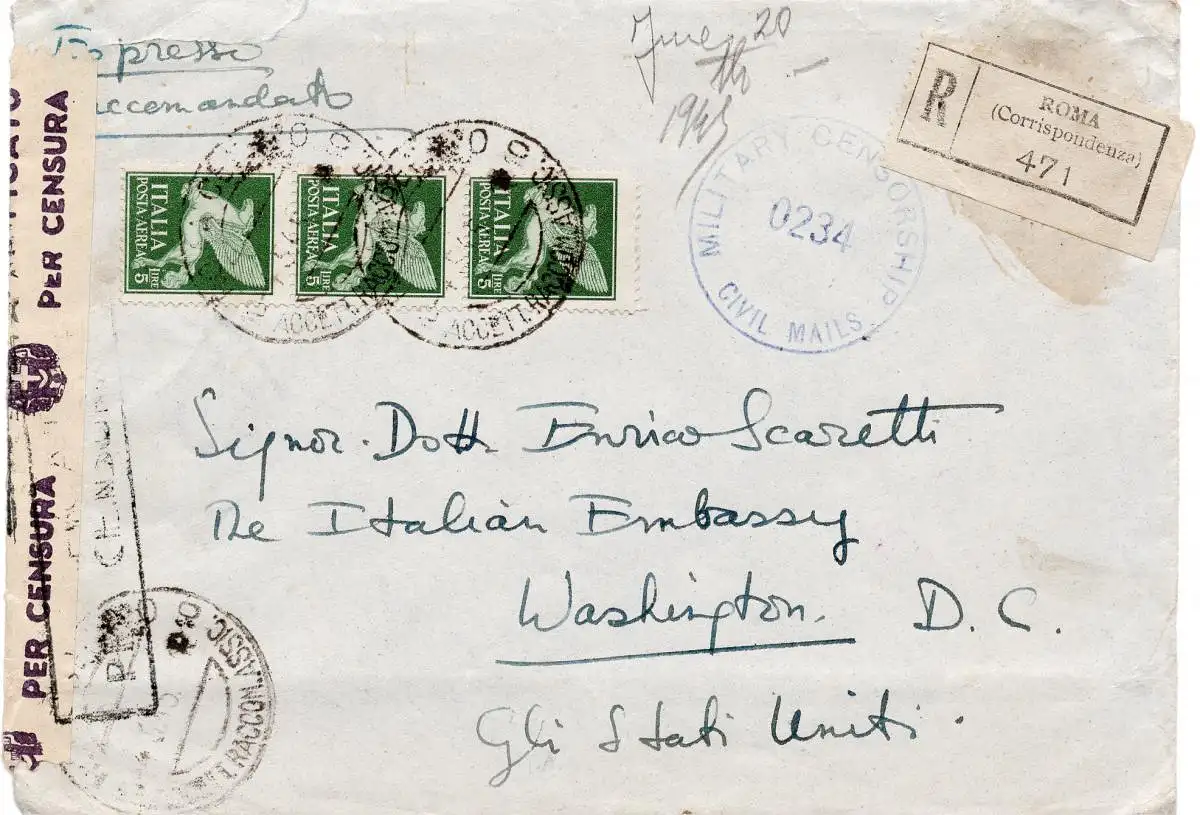 Espresso
June 20
th
1945
R
ROMA
(Corrispondenza)
471
ITALIA
POSTA AEREA
LIRE
5
ITALIA
POSTA AEREA
LIRE
5
ITALIA
POSTA AEREA
LIRE
5
MILITARY CENSORSHIP
0234
CIVIL MAILS
PER CENSURA
PER CENSURA
Signor. Dott. Enrico Scaretti
The Italian Embassy
Washington. D. C.
Gli Stati Uniti.